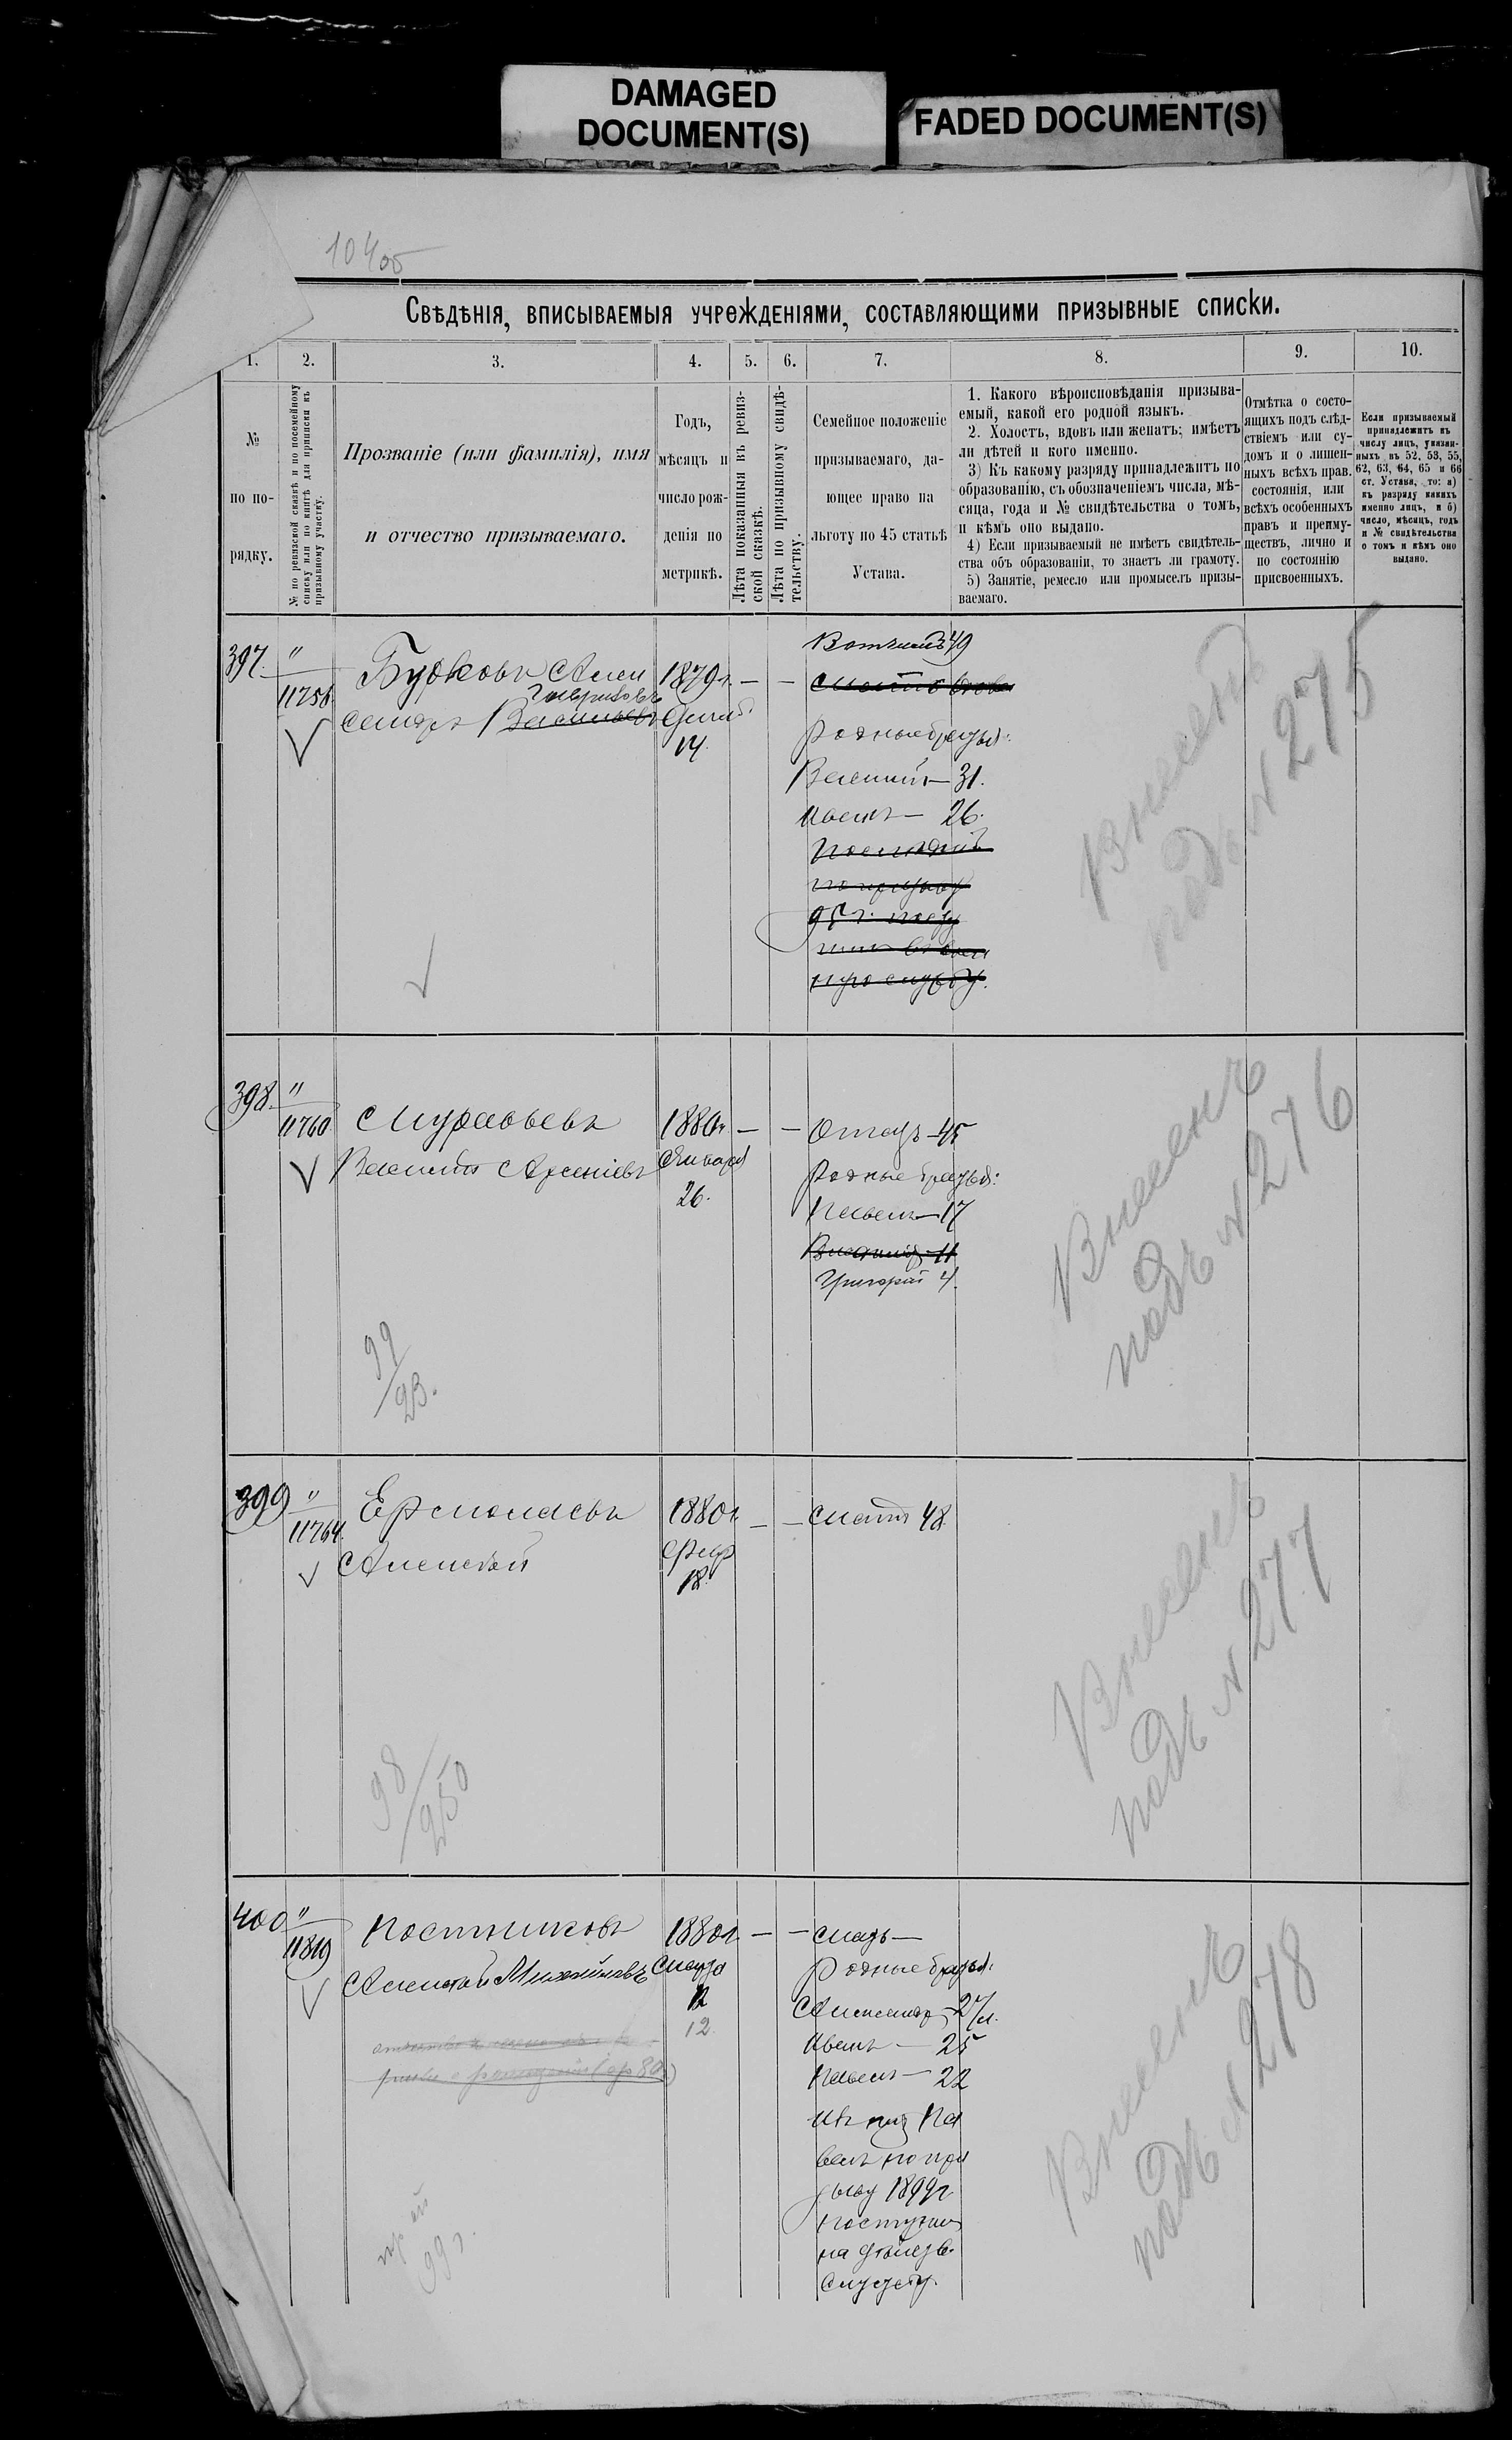 DAMAGED
DOCUMENT(S)
FADED DOCUMENT(S)
104об
Свѣдѣнія, вписываемыя учрежденіями, составляющими призывные списки.
1.
2.
3.
4.
5.
6.
7.
8.
9.
10.
№
по по-
рядку.
№ по ревизской сказкѣ и по посемейному
списку или по книгѣ для приписки къ
призывному участку.
Прозваніе (или фамилія), имя
и отчество призываемаго.
Годъ,
мѣсяцъ и
число рож-
денія по
метрикѣ.
Лѣта показанныя въ ревиз-
ской сказкѣ.
Лѣта по призывному свидѣ-
тельству.
Семейное положеніе
призываемаго, да-
ющее право на
льготу по 45 статьѣ
Устава.
1. Какого вѣроисповѣданія призыва-
емый, какой его родной языкъ.
2. Холостъ, вдовъ или женатъ; имѣетъ
ли дѣтей и кого именно.
3) Къ какому разряду принадлежитъ по
образованію, съ обозначеніемъ числа, мѣ-
сяца, года и № свидѣтельства о томъ,
и кѣмъ оно выдано.
4) Если призываемый не имѣетъ свидѣтель-
ства объ образованіи, то знаетъ ли грамоту.
5) Занятіе, ремесло или промыселъ призы-
ваемаго.
Отмѣтка о состо-
ящихъ подъ слѣд-
ствіемъ или су-
домъ и о лишен-
ныхъ всѣхъ прав.
состоянія, или
всѣхъ особенныхъ
правъ и преиму-
ществъ, лично и
по состоянію
присвоенныхъ.
Если призываемый
принадлежитъ къ
числу лицъ, указан-
ныхъ въ 52, 53, 55,
62, 63, 64, 65 и 66
ст. Устава, то: а)
къ разряду какихъ
именно лицъ, и б)
число, мѣсяцъ, годъ
и № свидѣтельства
о томъ и кѣмъ оно
выдано.
397. "
11756
Алек
сандръ Васильевъ
Гавриловъ
1879г. — —
14.
Вотчимъ 49
Родные братья:
Василій — 31.
Иванъ — 26.
Последній
по призыву
службу.
Внесенъ
подъ № 275
398. "
11760
Муравьевъ
Василій Арсеніевъ
1880г. — —
Января
26.
Отецъ — 45
Родные братья:
Павелъ — 17
Григорій 4.
99
23.
Внесенъ
подъ № 276
399 "
11764.
Ермолаевъ
Алексѣй
1880г. — —
Февр
18.
Мать 48
98
250
Внесенъ
подъ № 277
400 "
11819
Постниковъ
Алексѣй Михайловъ
1880г. — —
Марта
12
12
Мать —
Родные братья:
Александр — 27л.
Иванъ — 25
Павелъ — 22
Изъ нихъ Па
велъ по при
зыву 1899г
поступилъ
на дѣйств.
службу.
99г.
Внесенъ
подъ № 278